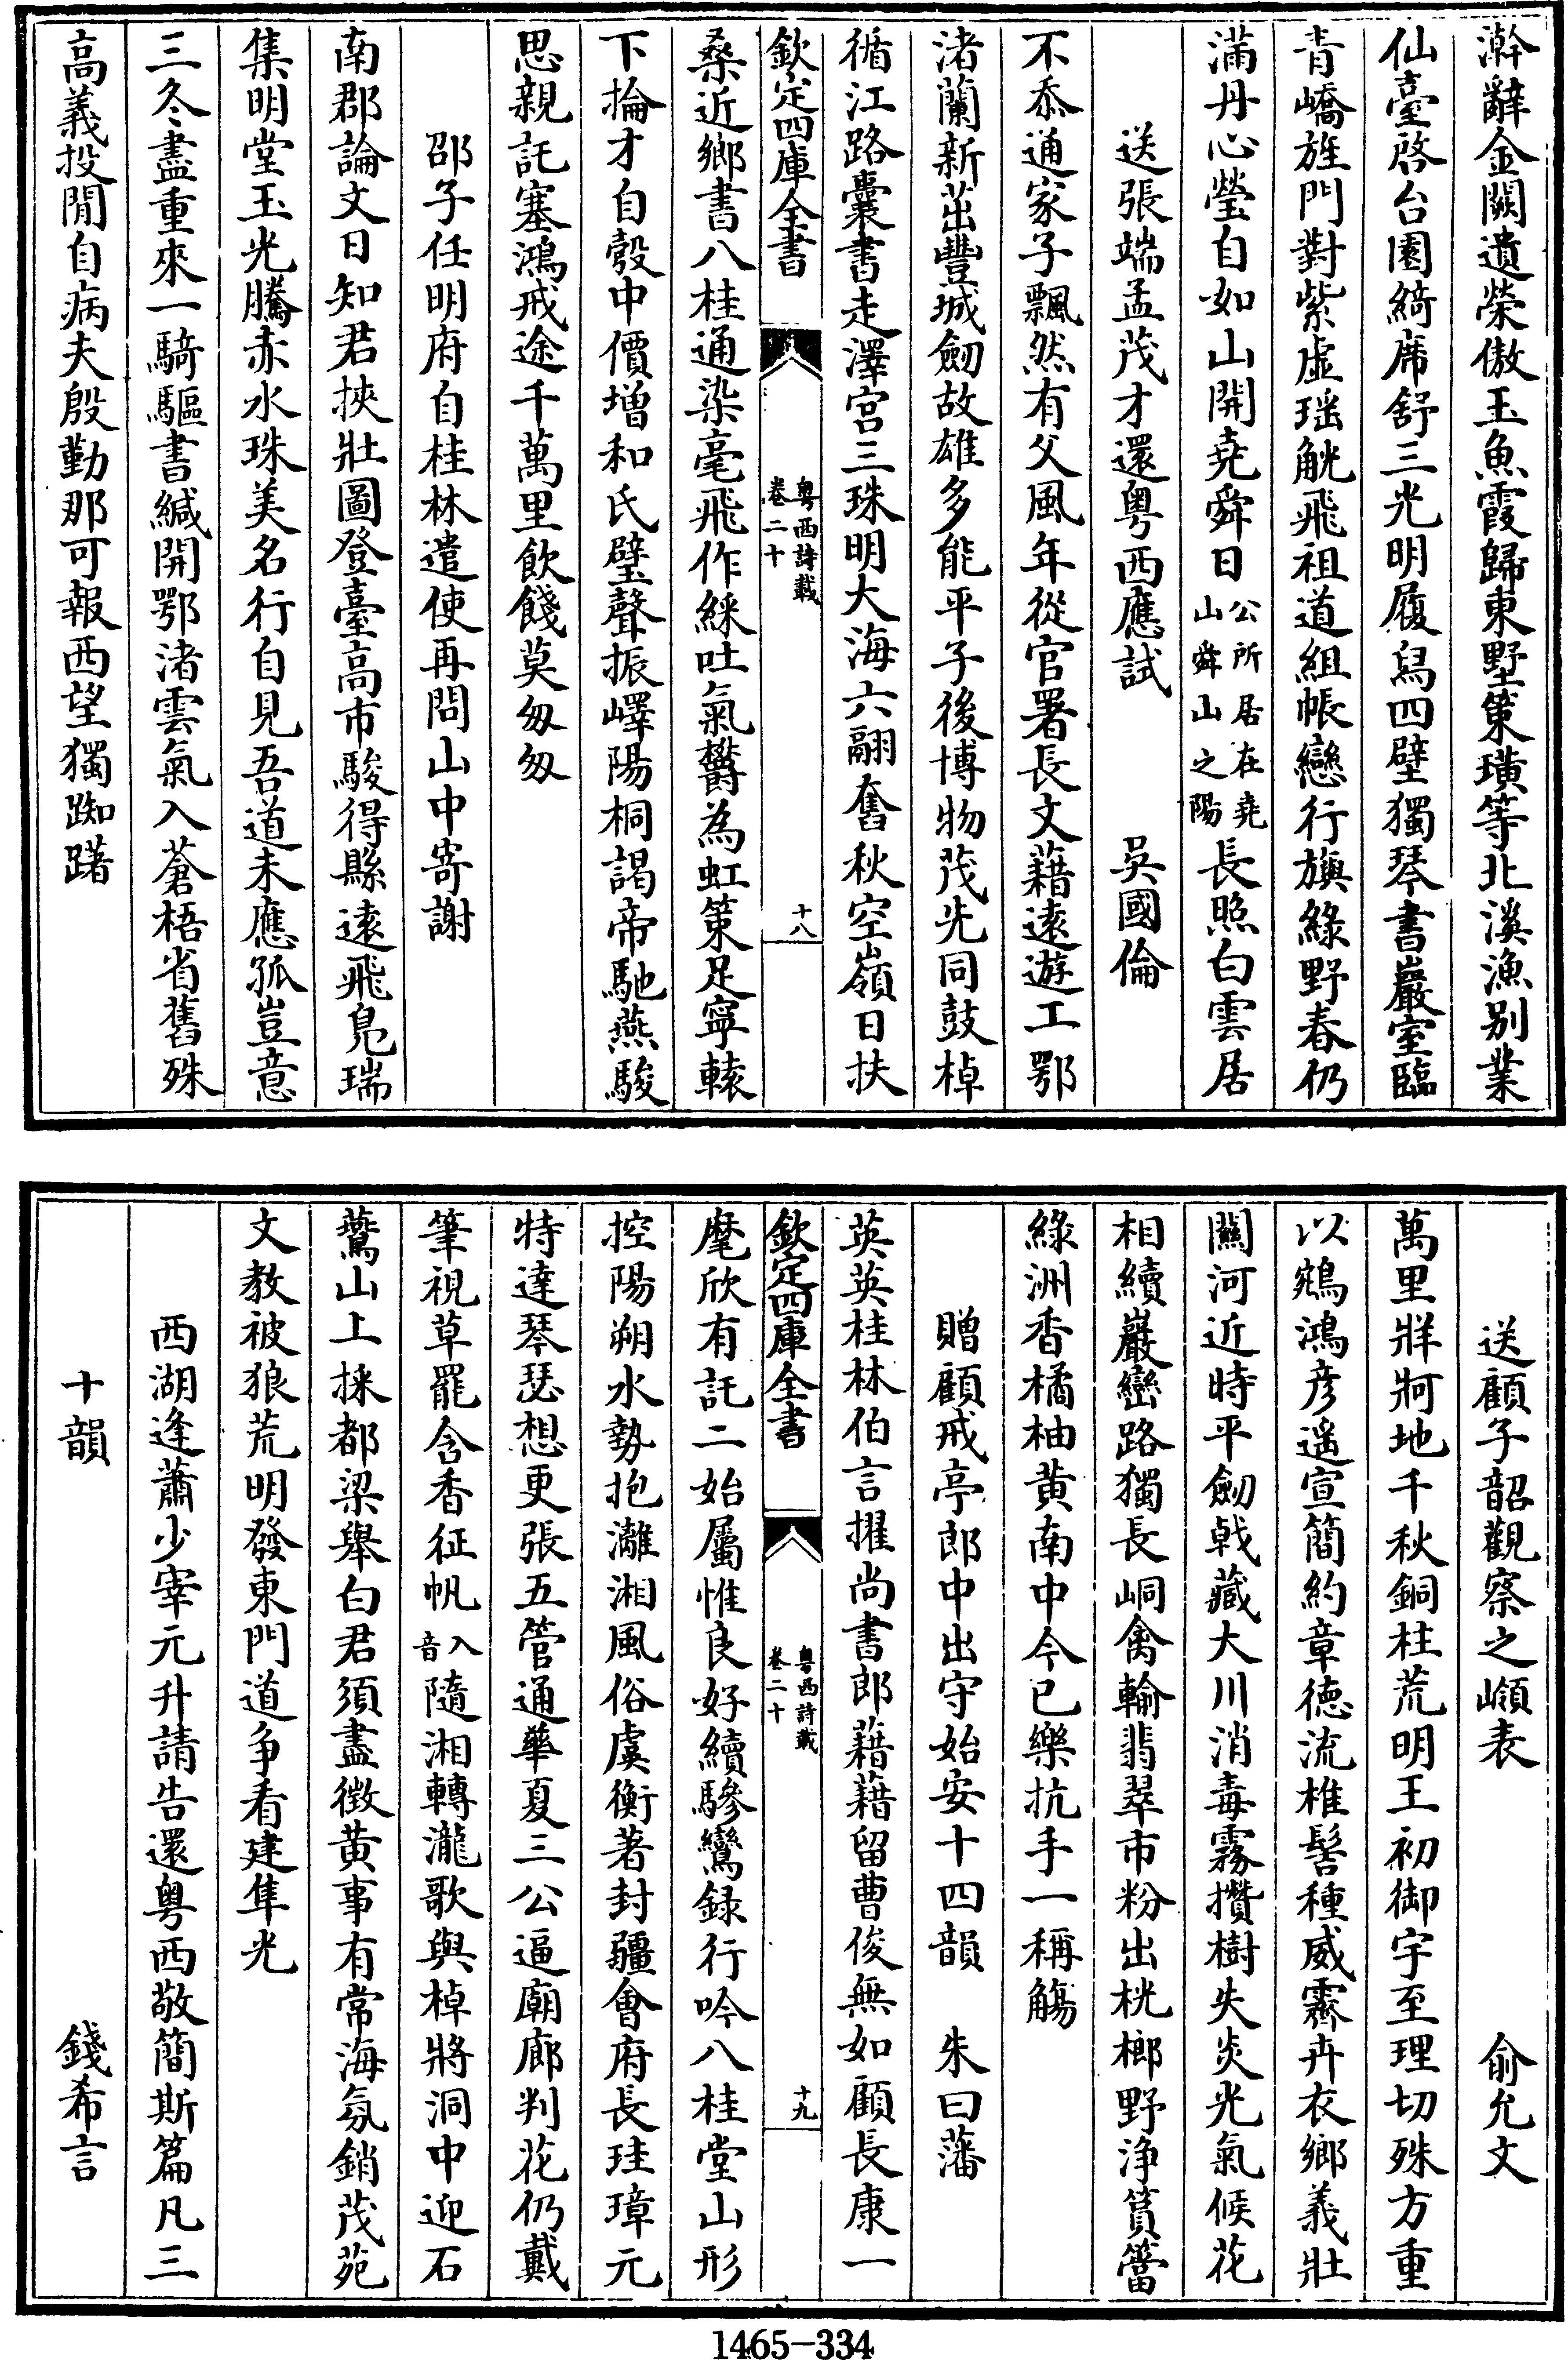 澣辭金闕遺榮傲玉魚霞歸東墅策璜等北溪漁别業
仙臺啓台園綺席舒三光明履舄四壁獨琴書巖室臨
青嶠旌門對紫虛瑶觥飛祖道組帳戀行旟綠野春仍
滿丹心瑩自如山開堯舜日公所居在堯山舜山之陽長照白雲居
送張端孟茂才還粤西應試　吳國倫
不忝通家子飄然有父風年從官署長文藉遠遊工鄂
渚蘭新茁豐城劒故雄多能平子後博物茂先同鼓棹
循江路囊書走澤宫三珠明大海六翮奮秋空嶺日扶
欽定四庫全書　粤西詩載卷二十　十八
桑近鄉書八桂通染毫飛作綵吐氣鬱為虹策足寧轅
下掄才自彀中價增和氏璧聲振嶧陽桐謁帝馳燕駿
思親託塞鴻戒途千萬里飲餞莫匆匆
邵子任明府自桂林遣使再問山中寄謝
南郡論文日知君挾壯圖登臺高市駿得縣遠飛鳬瑞
集明堂玉光騰赤水珠美名行自見吾道未應孤豈意
三冬盡重來一騎驅書緘開鄂渚雲氣入蒼梧省舊殊
高義投閒自病夫殷勤那可報西望獨踟躇
送顧子韶觀察之嶺表　俞允文
萬里牂牁地千秋銅柱荒明王初御宇至理切殊方重
以鵷鴻彦遥宣簡約章徳流椎髻種威霽卉衣鄉義壯
關河近時平劒戟藏大川消毒霧攢樹失炎光氣候花
相續巖巒路獨長峒禽輸翡翠市粉出桄榔野净篔簹
綠洲香橘柚黄南中今已樂抗手一稱觴
贈顧戒亭郎中出守始安十四韻　朱曰藩
英英桂林伯言擢尚書郎藉藉留曹俊無如顧長康一
欽定四庫全書　粤西詩載卷二十　十九
麾欣有託二始屬惟良好續驂鸞録行吟八桂堂山形
控陽朔水勢抱灕湘風俗虞衡著封疆會府長珪璋元
特達琴瑟想更張五管通華夏三公逼廟廊判花仍戴
筆視草罷含香征帆入音隨湘轉瀧歌與棹將洞中迎石
鷰山上採都梁舉白君須盡徵黄事有常海氛銷茂苑
文教被狼荒明發東門道争看建隼光
西湖逢蕭少宰元升請告還粤西敬簡斯篇凡三
十韻　錢希言
1465-334